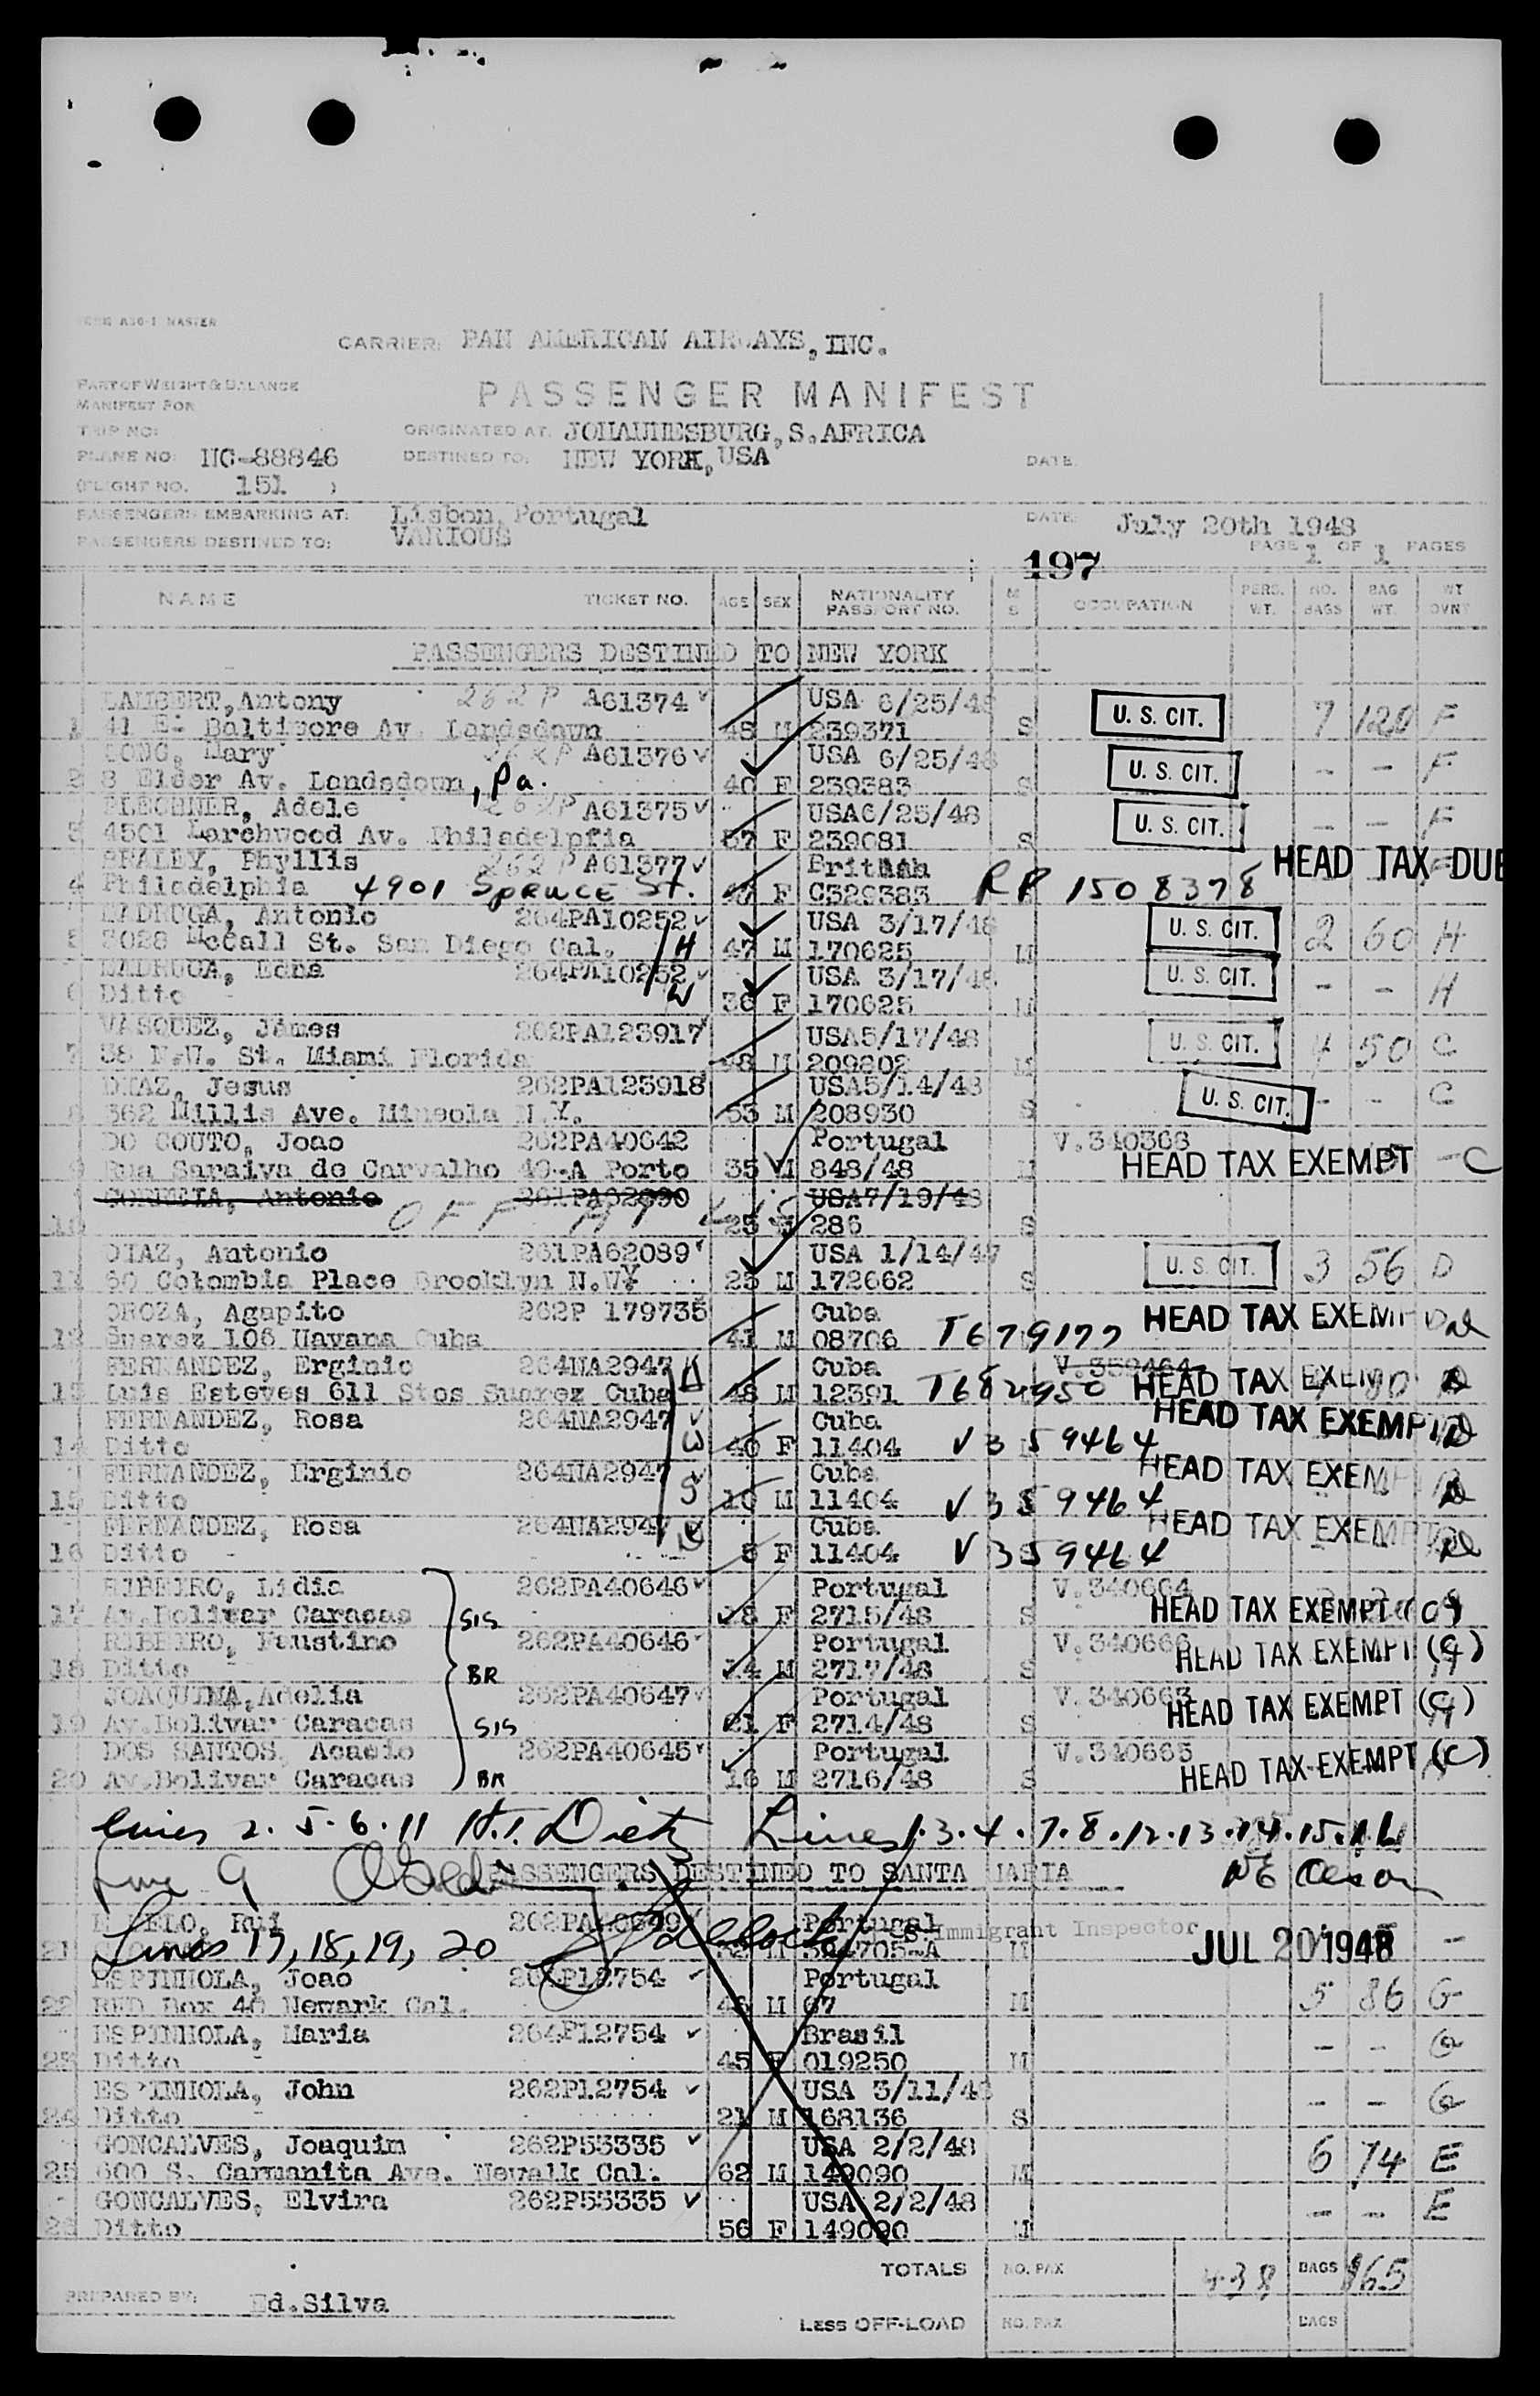 FORM A30-1 MASTER
CARRIER: PAN AMERICAN AIRWAYS, INC.
PART OF WEIGHT & BALANCE
MANIFEST FOR
PASSENGER MANIFEST
TRIP NO:
ORIGINATED AT. JOHANNESBURG, S.AFRICA
PLANE NO: NC-88846
DESTINED TO: NEW YORK, USA
DATE
(FLIGHT NO. 151 )
PASSENGERS EMBARKING AT: Lisbon, Portugal
DATE: July 20th 1948
PASSENGERS DESTINED TO: VARIOUS
PAGE 1 OF 1 PAGES
197
NAME TICKET NO. AGE SEX NATIONALITY PASSPORT NO. M S OCCUPATION PERS. WT. NO. BAGS BAG WT. WT OVNT
PASSENGERS DESTINED TO NEW YORK
LAMBERT, Antony 262P A61374 USA 6/25/48 U. S. CIT. 7 120 F
1 41 E. Baltimore Av. Landsdown 45 M 239371 S
LONG, Mary 262P A61376 USA 6/25/48 U. S. CIT. - - F
2 8 Elder Av. Landsdown, Pa. 40 F 239383 S
BLECHNER, Adele 262P A61375 USA6/25/48 U. S. CIT. - - F
3 4501 Larchwood Av. Philadelpfia 57 F 239081 S
Phyllis 262P A61377 British HEAD TAX DUE
4 Philadelphia 4901 Spruce St. F C329383 RP 1508378
MADRUGA, Antonio 264PA10252 USA 3/17/48 U. S. CIT. 2 60 H
5 3028 McCall St. San Diego Cal. H 47 M 170625 M
MADRUGA, Edna 264PA10252 USA 3/17/48 U. S. CIT. - - H
6 Ditto W 36 F 170625 M
VASQUEZ, James 262PA123917 USA5/17/48 U. S. CIT. 4 50 C
7 38 N.W. St. Miami Florida 48 M 209802 M
DIAZ, Jesus 262PA123918 USA5/14/48 U. S. CIT. - - C
8 362 Willis Ave. Mineola N.Y. 53 M 208930 S
DO COUTO, Joao 262PA40642 Portugal V.340368
9 Rua Saraiva de Carvalho 40-A Porto 35 M 848/48 M HEAD TAX EXEMPT - C
CORREIA, Antonio USA7/19/48
10 OFF AT LIS 25 M 286 S
DIAZ, Antonio 261PA62089 USA 1/14/47 U. S. CIT. 3 56 D
11 60 Colombia Place Brooklyn N.Y. 25 M 172662 S
OROZA, Agapito 262P 179735 Cuba HEAD TAX EXEMPT
12 Suarez 106 Havana Cuba 41 M 08706 T679177
FERNANDEZ, Erginio 264NA2947 H Cuba V.359464
13 Luis Esteves 611 Stos Suarez Cuba 48 M 12391 T682950 HEAD TAX EXEMPT
FERNANDEZ, Rosa 264NA2947 Cuba HEAD TAX EXEMPT
14 Ditto W 40 F 11404 V359464
FERNANDEZ, Erginio 264NA2947 Cuba HEAD TAX EXEMPT
15 Ditto S 10 M 11404 V359464
FERNANDEZ, Rosa 264NA2947 Cuba HEAD TAX EXEMPT
16 Ditto 8 F 11404 V359464
RIBEIRO, Lidia 262PA40646 Portugal V.340664
17 Av.Bolivar Caracas SIS 18 F 2715/48 S HEAD TAX EXEMPT (C)
RIBEIRO, Faustino 262PA40646 Portugal V.340666
18 Ditto BR 14 M 2717/48 S HEAD TAX EXEMPT (C)
JOAQUINA, Adelia 262PA40647 Portugal V.340663
19 Av.Bolivar Caracas SIS 21 F 2714/48 S HEAD TAX EXEMPT (C)
DOS SANTOS, Acasio 262PA40645 Portugal V.340665
20 Av.Bolivar Caracas BR 16 M 2716/48 S HEAD TAX EXEMPT (C)
Lines 2. 5. 6. 11 H.T. Dietz Lines 1. 3. 4. 7. 8. 12. 13. 14. 15. 16
PASSENGERS DESTINED TO SANTA MARIA
Line 9 NE Olson
Rui Portugal Immigrant Inspector
21 Lines 17, 18, 19, 20 M JUL 20 1948 -
ESPINHOLA, Joao Portugal
22 RFD Box 40 Newark Cal. 48 M 67 M 5 86 G
ESPINHOLA, Maria 264P12754 Brasil
23 Ditto 45 F 019250 M - - G
ESPINHOLA, John 262P12754 USA 3/11/48
24 Ditto 21 M 168136 S - - G
GONCALVES, Joaquim 262P53335 USA 2/2/48
25 600 S. Carmanita Ave. Newalk Cal. 62 M 149090 M 6 74 E
GONCALVES, Elvira 262P53335 USA 2/2/48
26 Ditto 56 F 149090 M - - E
TOTALS NO. PAX 438 BAGS 865
PREPARED BY: Ed.Silva
LESS OFF-LOAD NO. PAX BAGS